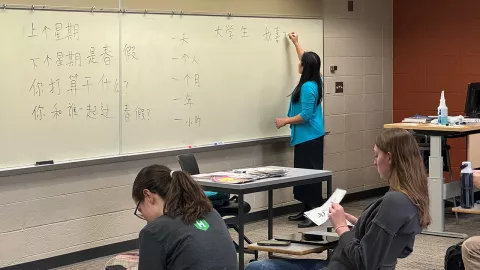 上个星期
下个星期是春假
你打算干什么?
你和谁一起过春假?
一天
一个人
一个月
一年
一小时
大学生 也喜